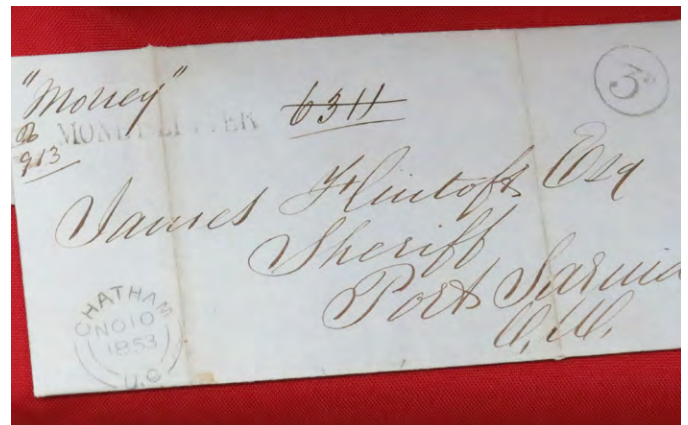 "Money"
MONEY LETTER
No
913
6311
3d
James Flintoft Esq
Sheriff
Port Sarnia
C.W.
CHATHAM
NO 10
1853
U.C